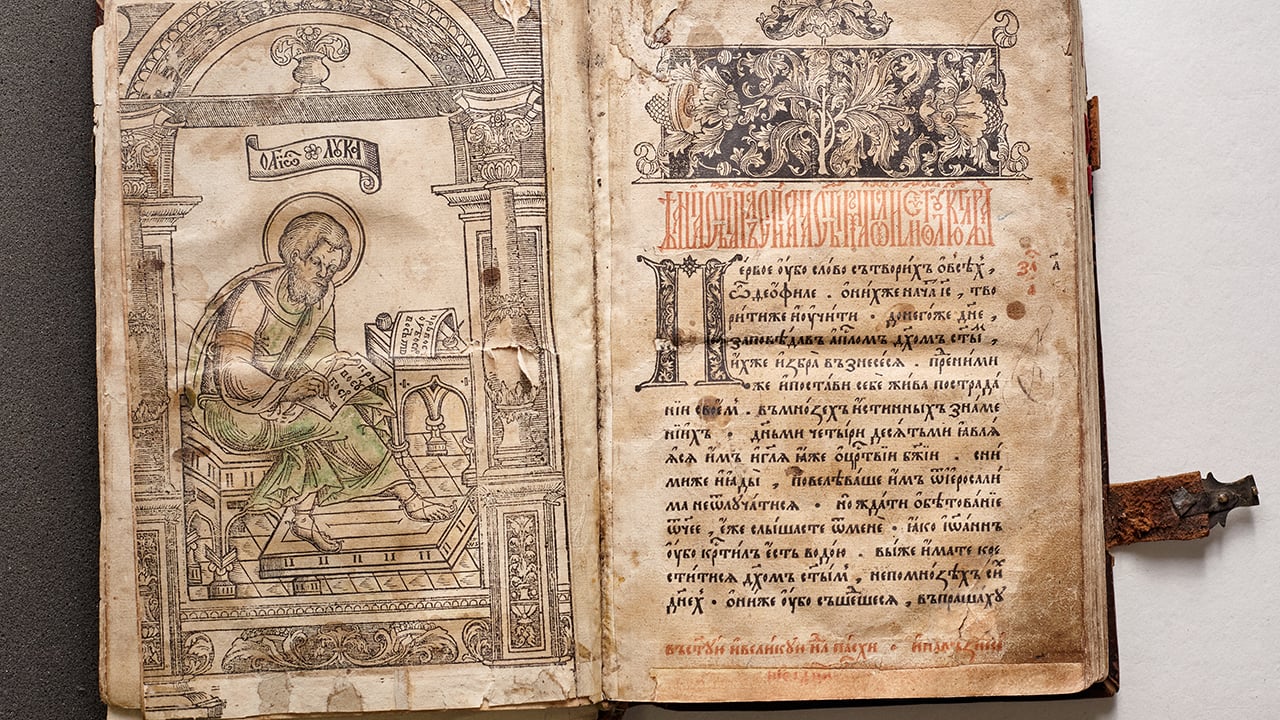 ѻ҆ а҆гїѡ҃ лꙋка
первое
ꙋбо
слова
ервое ѹ҆бо слово сътворихъ ѡ҆всѣⷯ,
ѽ ѳеѻ҆филе . ѻ҆ нихже начаⷧ҇ а҆ і҃с , тво
рити же и҆ ѹ҆чити · донегоже дн҃е ,
заповѣдавъ а҆пⷭ҇ломъ дх҃омъ ст҃ыⷨ ,
и҆хже и҆збра възнесесѧ . пред̾ ними
же и҆ постави себе жива по страда
нїи своемⸯ . въ мнозѣхъ и҆стинныхъ зна́ме
нїихъ · дн҃ьми четыри десѧтьми ꙗ҆влѧ
ѧсѧ и҆мъ и҆ гл҃ѧ ꙗ҆же ѡ҆ црⷭ҇твїи бж҃їи . сни
миже и҆ ꙗ҆ды̀ , повелѣваше и҆мъ ѿ і҆ерⷭ҇али
ма не ѿлѹчатисѧ · но ждати ѻ҆бѣтованїе
ѿчее , е҆же слышасте ѿ мене · ꙗ҆ко і҆ѡаннъ
ѹ҆бо крⷭ҇тилъ е҆сть водою . вы же и҆мате крⷭ҇
ститисѧ дх҃омъ ст҃ыⷨ , не по мнозѣхъ сиⷯ
дн҃еⷯ · ѻ҆ниже ѹ҆бо съшеⷣшесѧ , въпрашахѹ
въ ст҃ѹю и҆ великѹю нⷣлю пасхи ·